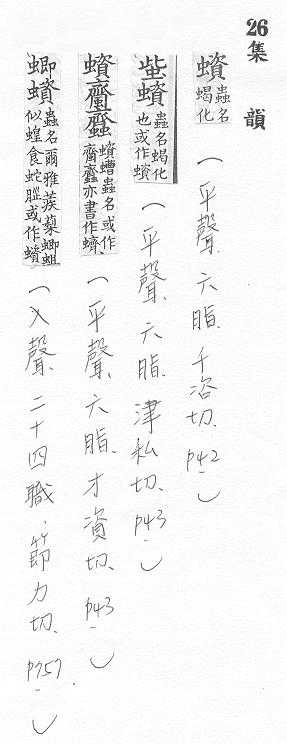 26 集韻
蠀 蟲名蝎化 (平聲、六脂、千咨切、p42)
蠀 蟲名蝎化也或作蠀 (平聲、六脂、津私切、p43)
蠀 蠀螬蟲名或作 亦書作蠐 (平聲、六脂、才資切、p43)
蝍蠀 蟲名爾雅蒺蔾蝍蛆似蝗食蛇腦或作蠀 (入聲、二十四職、節力切、p757)